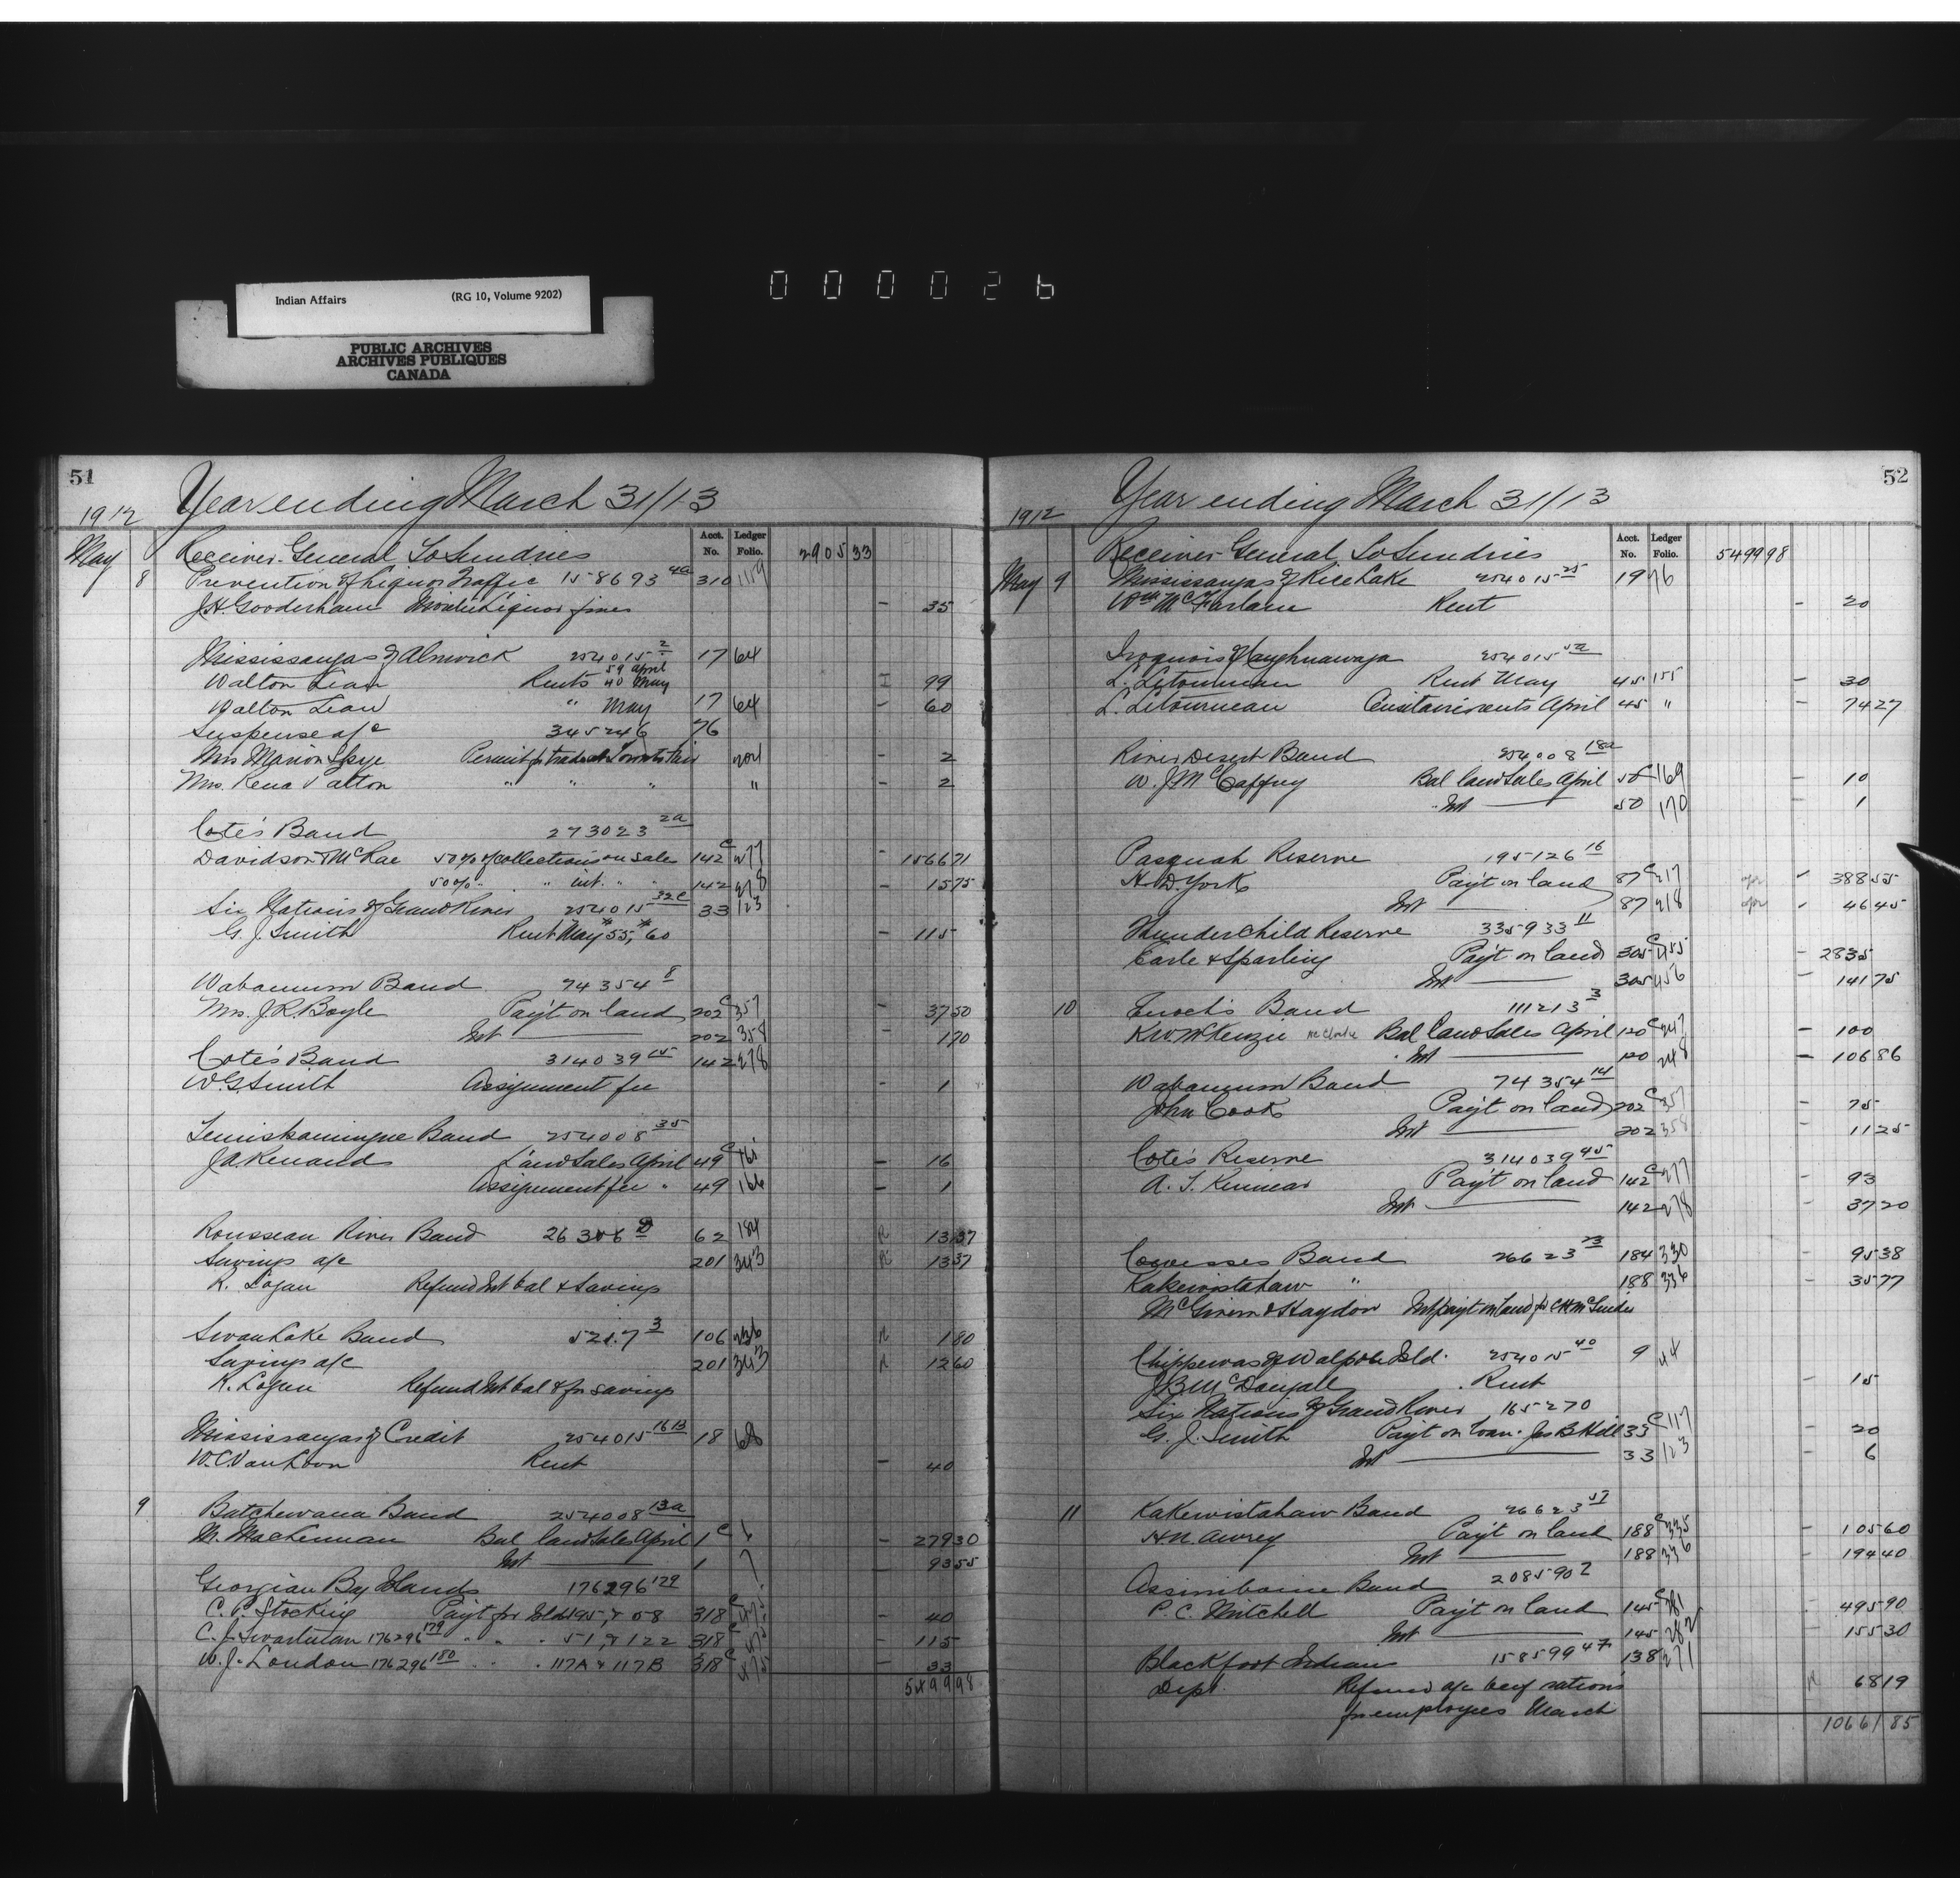 Indian Affairs (RG 10, Volume 9202)
PUBLIC ARCHIVES
ARCHIVES PUBLIQUES
CANADA
000026
51
1912 Year ending March 31/13
Acct. No. Ledger Folio.
May 8 Receiver General To Sundries 2905 33
Prevention of Liquor Traffic 158693 4a 310 1159
J.H. Gooderham Liquor fines - 35
Mississaugas of Alnwick 254015 2 17 64
Walton Lean Rents 59 April 40 May 99
Walton Lean " May 17 64 - 60
Suspense a/c 345246 76
Mrs Marion Skye Permit to trade at Toronto Fair - 2
Mrs. Rena Patton " " " " - 2
Cote's Band 273023 2a
Davidson & McRae 50% of collections on sale 142 c 277 - 1566 71
50% " " int. " " 142 278 - 15 75
Six Nations of Grand River 254015 32c 33 123
G. J. Smith Rent May 55, 60 - 115
Wabamum Band 74354 8
Mrs. J.R. Boyle Pay't on land 202 c 357 - 37 50
Int 202 358 - 1 70
Cote's Band 314039 142 278
W.G. Smith Assignment fee - 1
Temiskamingue Band 254008 35
J.A. Renaud Land Sales April 49 c 165 - 16
Assignment fee " 49 166 - 1
Rousseau River Band 26306 62 184 R 13 37
Savings a/c 201 343 R 13 37
R. Logan Refund Int bal & Savings
Swan Lake Band 5217 3 106 236 R 1 80
Savings a/c 201 343 R 12 60
R. Logan Refund Int bal & for savings
Mississaugas of Credit 254015 16 13 18 68
W.C. Van Loon Rent - 40
9 Batchewana Band 254008 13a
M. MacLennan Bal land Sales April 1 c 6 - 279 30
Int 1 7 - 93 55
Georgian Bay Islands 176296 179
C. P. Stocking Pay't for Isld 195, & 58 318 c 475 - 40
C. J. Swartman 176296 179 " " " 51, & 122 318 c 475 - 115
W. J. London 176296 180 " " " 117A & 117B 318 c 475 - 33
5499 98
52
1912 Year ending March 31/13
Acct. No. Ledger Folio.
Receiver General To Sundries 5499 98
May 9 Mississaugas of Rice Lake 254015 25 19 76
Wm McFarlane Rent - 20
Iroquois of Caughnawaga 254015 52
L. Letourneau Rent May 45 155 - 30
L. Letourneau Censitaire rents April 45 " - 74 27
River Desert Band 254008 18a
W. J. McCaffrey Bal land Sales April 50 c 169 - 10
" Int 50 170 - 1
Pasquah Reserve 195126 16
H. D. York Pay't on land 87 c 217 - 388 55
Int 87 218 - 46 45
Thunderchild Reserve 335933 11
Earle & Sparling Pay't on land 305 c 455 - 2835
Int 305 456 - 141 75
10 Enoch's Band 111213 3
K.W. McKenzie Bal land Sales April 120 c 247 - 100
" Int 120 248 - 106 86
Wabamum Band 74354 14
John Cook Pay't on land 202 c 357 - 75
Int 202 358 - 11 25
Cote's Reserve 314039 45
A. T. Kinnear Pay't on land 142 c 277 - 93
Int 142 278 - 37 20
Cowesses Band 26623 73 184 330 - 95 38
Kakewistahaw " 188 336 - 35 77
McGivern & Haydon Int pay't on land for
Chippewas of Walpole Isld. 254015 40 9 44
J B McDougall Rent - 15
Six Nations of Grand River 165270
G. J. Smith Pay't on loan. Jas B Hill 33 c 117 - 20
Int 33 123 - 6
11 Kakewistahaw Band 26623 57
H N Awrey Pay't on land 188 c 335 - 105 60
Int 188 336 - 194 40
Assiniboine Band 208590 2
P. C. Mitchell Pay't on land 145 c 281 - 495 90
Int 145 282 - 155 30
Blackfoot Indians 158599 47 138 271
Dept. Refund a/c beef rations R 68 19
for employees March
10661 85